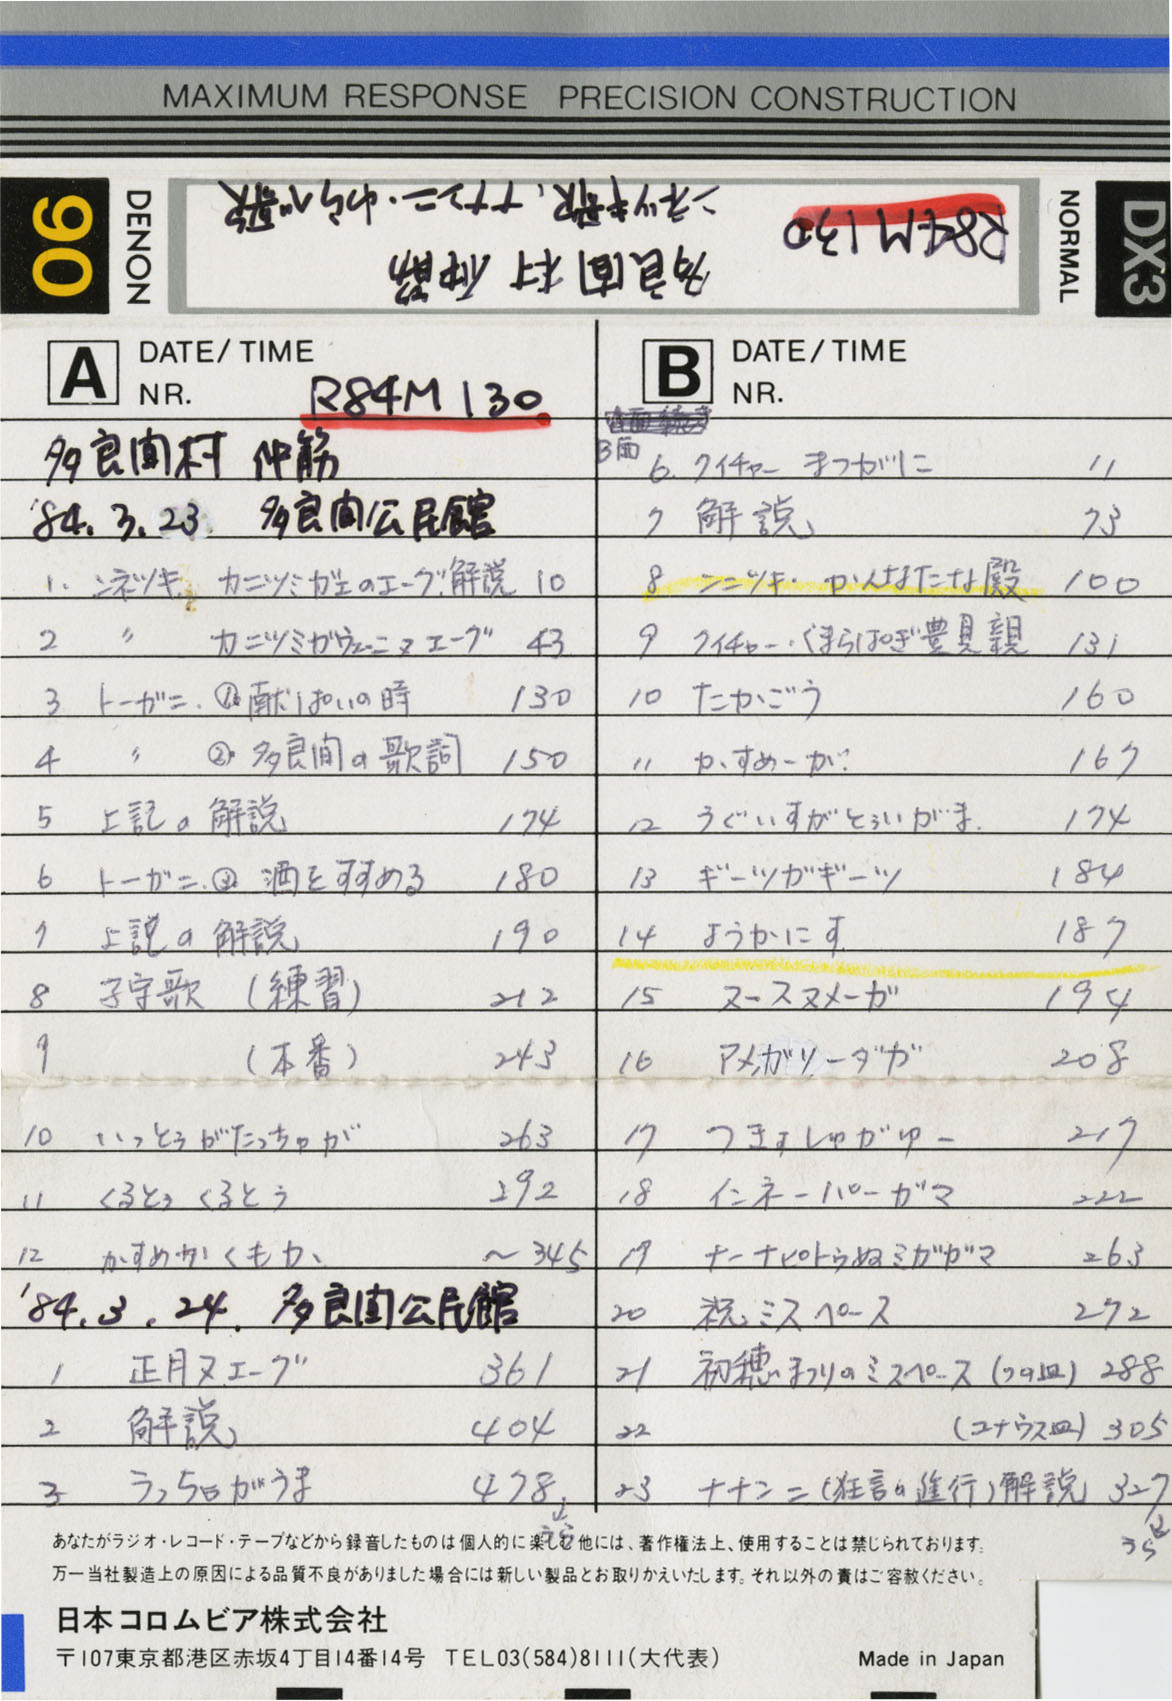 MAXIMUM RESPONSE PRECISION CONSTRUCTION
90
DENON
R84M130
多良間村 仲筋
ンネツキ歌、ナナンニ・わらべ歌
NORMAL
DX3
A
DATE/TIME
NR.
R84M130
多良間村 仲筋
'84.3.23 多良間公民館
1. ンネツキ. カニツミガエのエーグ.解説 10
2 〃 カニツミガヴェーニヌエーグ 43
3 トーガニ. ① 献ぱいの時 130
4 〃 ② 多良間の歌詞 150
5 上記の解説 174
6 トーガニ.③ 酒をすすめる 180
7 上説の解説 190
8 子守歌 (練習) 212
9 (本番) 243
10 いっとぅがたっちゅが 263
11 くるとぅくるとぅ 292
12 かすめかくもか、 〜345
'84.3.24. 多良間公民館
1 正月ヌエーグ 361
2 解説 404
3 うっちなうま 478
↓
うら
B
DATE/TIME
NR.
B面
6. クイチャー まつがに 11
7 解説 73
8 ンニツキ. かんなたな殿 100
9 クイチャー.くまらぱぎ豊見親 131
10 たかごう 160
11 かすめーが 167
12 うぐいすがとぅいがま. 174
13 ギーツガギーツ 184
14 ようかにす 187
15 ヌースヌメーガ 194
16 アメガソーダガ 208
17 つきすしゅがゆー 217
18 インネーパーガマ 222
19 ナーナピトゥぬミガガマ 263
20 祝ミスペース 272
21 初穂まつりのミスペース (ツヌ皿) 288
22 (ユナウス皿) 305
23 ナナンニ(狂言の進行)解説 327
↓
うら
あなたがラジオ・レコード・テープなどから録音したものは個人的に楽しむ他には、著作権法上、使用することは禁じられております。
万一当社製造上の原因による品質不良がありました場合には新しい製品とお取りかえいたします。それ以外の責はご容赦ください。
日本コロムビア株式会社
〒107東京都港区赤坂4丁目14番14号 TEL03(584)8111(大代表)
Made in Japan